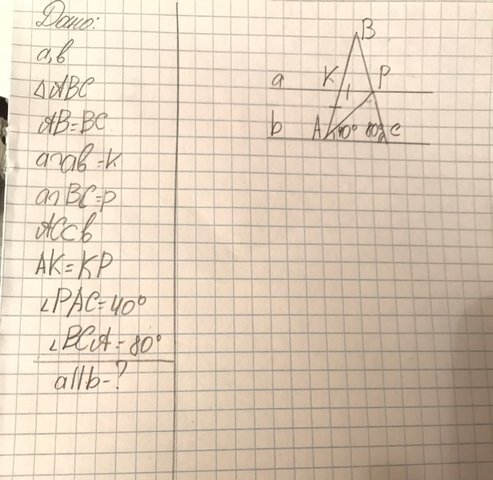 Дано:
a, b
△ABC
AB=BC
a∩AB=K
a∩BC=P
AC⊂b
AK=KP
∠PAC=40°
∠BCA=80°
a||b-?
B
a K P
b A 40° 80° C